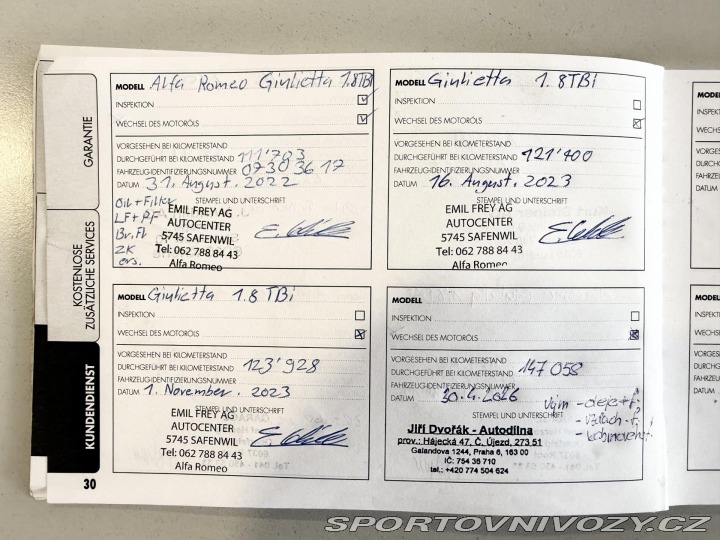 GARANTIE
KOSTENLOSE
ZUSÄTZLICHE SERVICES
KUNDENDIENST
MODELL Alfa Romeo Giulietta 1.8TBi
INSPEKTION
WECHSEL DES MOTORÖLS
VORGESEHEN BEI KILOMETERSTAND
DURCHGEFÜHRT BEI KILOMETERSTAND 111'703
FAHRZEUGIDENTIFIZIERUNGSNUMMER 0730 36 17
DATUM 31. August. 2022
STEMPEL UND UNTERSCHRIFT
Oil + Filter
LF + PF
Br. Fl
ZK
ers.
EMIL FREY AG
AUTOCENTER
5745 SAFENWIL
Tel: 062 788 84 43
Alfa Romeo
MODELL Giulietta 1.8TBi
INSPEKTION
WECHSEL DES MOTORÖLS
VORGESEHEN BEI KILOMETERSTAND
DURCHGEFÜHRT BEI KILOMETERSTAND 121'400
FAHRZEUGIDENTIFIZIERUNGSNUMMER
DATUM 16. August. 2023
STEMPEL UND UNTERSCHRIFT
EMIL FREY AG
AUTOCENTER
5745 SAFENWIL
Tel: 062 788 84 43
Alfa Romeo
MODELL Giulietta 1.8 TBi
INSPEKTION
WECHSEL DES MOTORÖLS
VORGESEHEN BEI KILOMETERSTAND
DURCHGEFÜHRT BEI KILOMETERSTAND 123'928
FAHRZEUGIDENTIFIZIERUNGSNUMMER
DATUM 1. November. 2023
STEMPEL UND UNTERSCHRIFT
EMIL FREY AG
AUTOCENTER
5745 SAFENWIL
Tel: 062 788 84 43
Alfa Romeo
MODELL
INSPEKTION
WECHSEL DES MOTORÖLS
VORGESEHEN BEI KILOMETERSTAND
DURCHGEFÜHRT BEI KILOMETERSTAND 147 058
FAHRZEUGIDENTIFIZIERUNGSNUMMER
DATUM 30.4.2026
STEMPEL UND UNTERSCHRIFT
Jiří Dvořák - Autodílna
prov.: Hájecká 47, Č. Újezd, 273 51
Galandova 1244, Praha 6, 163 00
IČ: 754 36 710
tel.: +420 774 504 624
30
SPORTOVNIVOZY.CZ